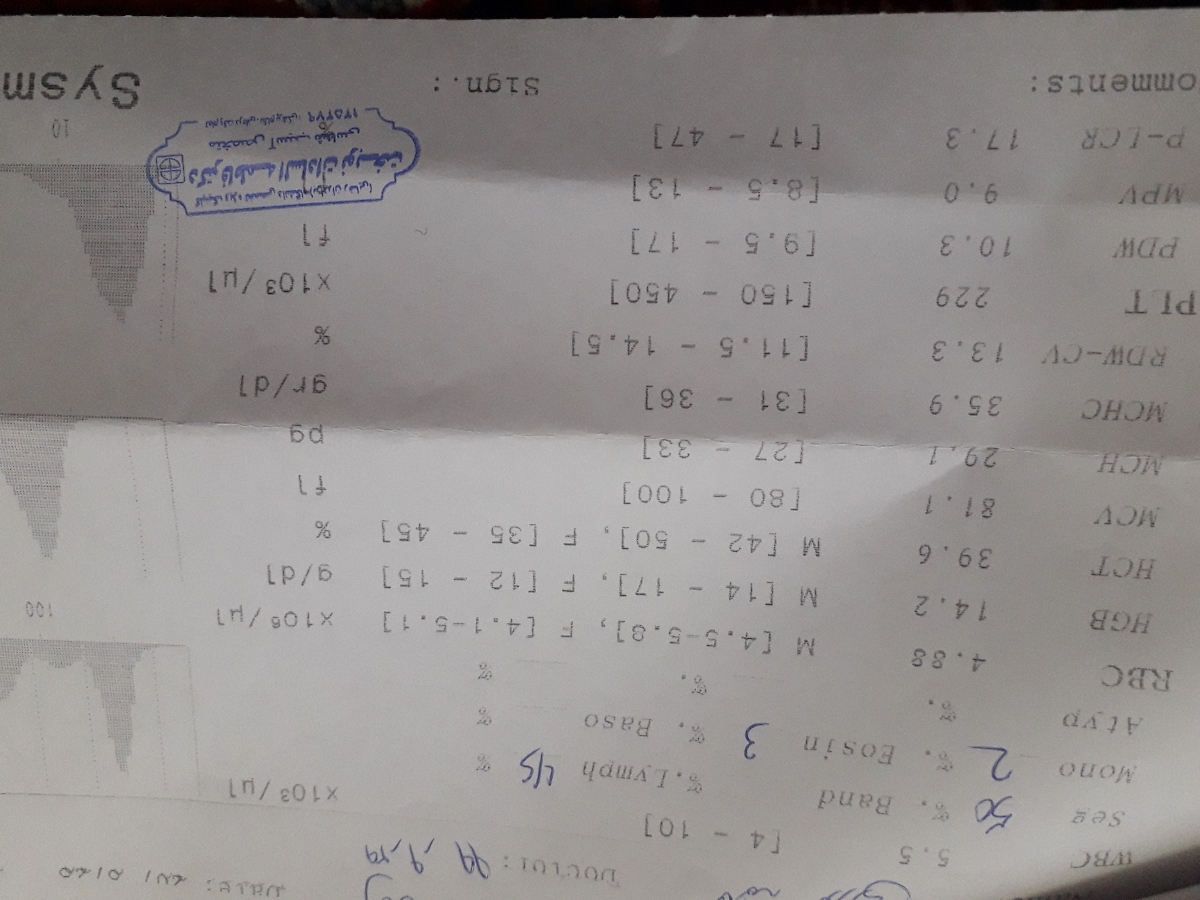 WBC 5.5 [4 - 10] x10³/µl
Seg 50 %. Band %. Lymph 45 %
Mono 2 %. Eosin 3 %. Baso %
Atyp %. %. %
RBC 4.88 M [4.5-5.8], F [4.1-5.1] x10⁶/µl
HGB 14.2 M [14 - 17], F [12 - 15] g/dl
HCT 39.6 M [42 - 50], F [35 - 45] %
MCV 81.1 [80 - 100] fl
MCH 29.1 [27 - 33] pg
MCHC 35.9 [31 - 36] gr/dl
RDW-CV 13.3 [11.5 - 14.5] %
PLT 229 [150 - 450] x10³/µl
PDW 10.3 [9.5 - 17] fl
MPV 9.0 [8.5 - 13]
P-LCR 17.3 [17 - 47]
omments: Sign.: Sysm
100
10
متخصص آسیب شناسی